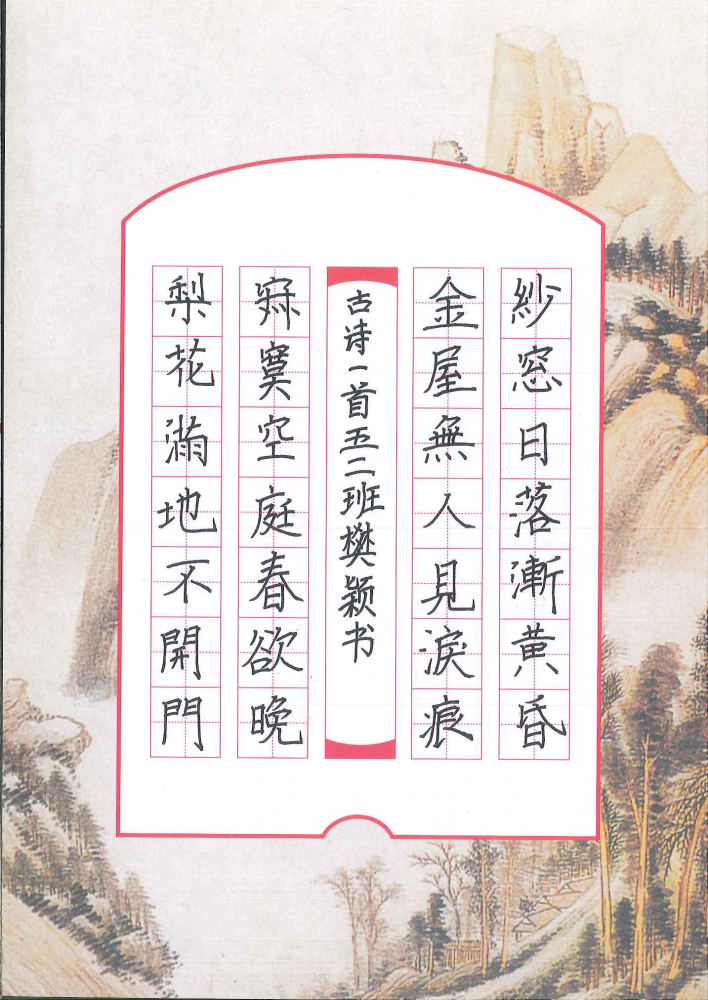 紗窓日落漸黄昏
金屋無人見淚痕
古诗一首五二班樊颖书
寂寞空庭春欲晚
梨花滿地不開門